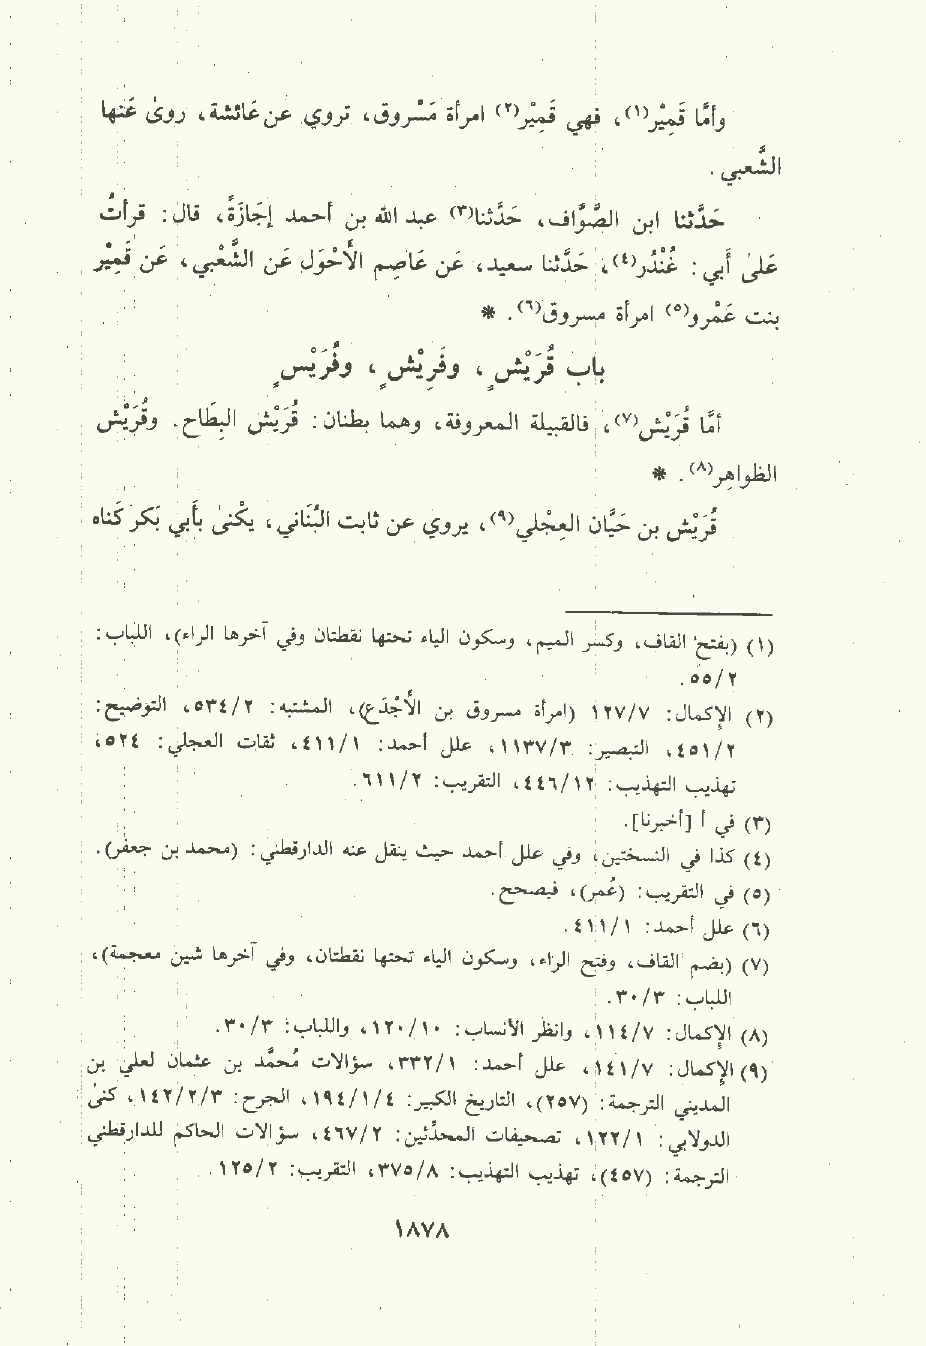 وأمَّا قَمِيْر(١)، فهي قَمِيْر(٢) امرأة مَسْروق، تروي عن عَائشة، روىٰ عَنها
الشَّعبي.
حَدَّثنا ابن الصَّوَّاف، حَدَّثنا(٣) عبد الله بن أحمد إجَازَةً، قال: قرأتُ
عَلىٰ أَبي: غُنْدُر(٤)، حَدَّثنا سعيد، عَن عَاصِم الأَحْوَل عَن الشَّعْبي، عَن قَمِيْر
بنت عَمْرو(٥) امرأة مسروق(٦). *
باب قُرَيْشٍ، وقَرِيْشٍ، وفُرَيْسٍ
أمَّا قُرَيْش(٧)، فالقبيلة المعروفة، وهما بطنان: قُرَيْش البِطَاح. وقُرَيْش
الظواهِر(٨). *
قُرَيْش بن حَيَّان العِجْلي(٩)، يروي عن ثابت البُنَاني، يكْنىٰ بأَبي بَكر كَناه
(١) (بفتح القاف، وكسر الميم، وسكون الياء تحتها نقطتان وفي آخرها الراء)، اللباب:
٥٥/٢.
(٢) الإكمال: ١٢٧/٧ (امرأة مسروق بن الأَجْدَع)، المشتبه: ٥٣٤/٢، التوضيح:
٤٥١/٢، التبصير: ١١٣٧/٣، علل أحمد: ٤١١/١، ثقات العجلي: ٥٢٤،
تهذيب التهذيب: ٤٤٦/١٢، التقريب: ٦١١/٢.
(٣) في أ [أخبرنا].
(٤) كذا في النسختين، وفي علل أحمد حيث ينقل عنه الدارقطني: (محمد بن جعفر).
(٥) في التقريب: (عُمر)، فيصحح.
(٦) علل أحمد: ٤١١/١.
(٧) (بضم القاف، وفتح الراء، وسكون الياء تحتها نقطتان، وفي آخرها شين معجمة)،
اللباب: ٣٠/٣.
(٨) الإكمال: ١١٤/٧، وانظر الأنساب: ١٢٠/١٠، واللباب: ٣٠/٣.
(٩) الإكمال: ١٤١/٧، علل أحمد: ٣٣٢/١، سؤالات مُحمَّد بن عثمان لعلي بن
المديني الترجمة: (٢٥٧)، التاريخ الكبير: ١٩٤/١/٤، الجرح: ١٤٢/٢/٣، كنىٰ
الدولابي: ١٢٢/١، تصحيفات المحدِّثين: ٤٦٧/٢، سؤالات الحاكم للدارقطني
الترجمة: (٤٥٧)، تهذيب التهذيب: ٣٧٥/٨، التقريب: ١٢٥/٢.
١٨٧٨